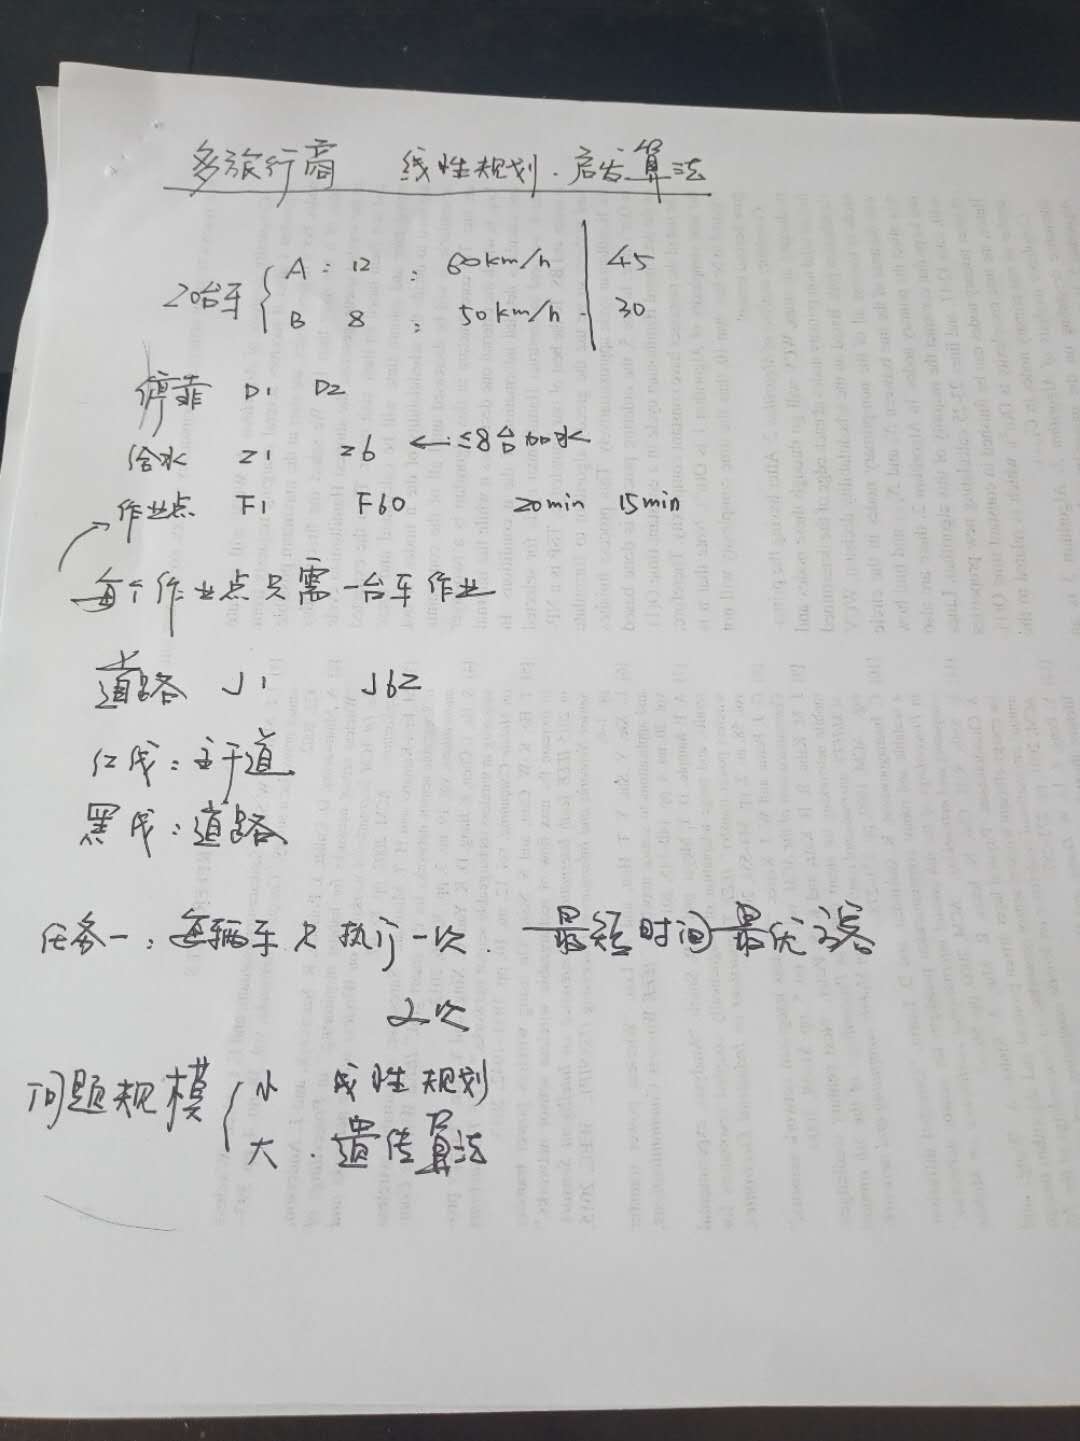 多旅行商 线性规划.启发算法
20台车 { A: 12 : 60km/h | 45
B 8 : 50km/h | 30
停靠 D1 D2
给水 Z1 Z6 ← ≤8台加水
作业点 F1 F60 20min 15min
每个作业点只需一台车作业
道路 J1 J62
红线:主干道
黑线:道路
任务一:每辆车只执行一次. 最短时间最优路
2次
问题规模 { 小 线性规划
大.遗传算法